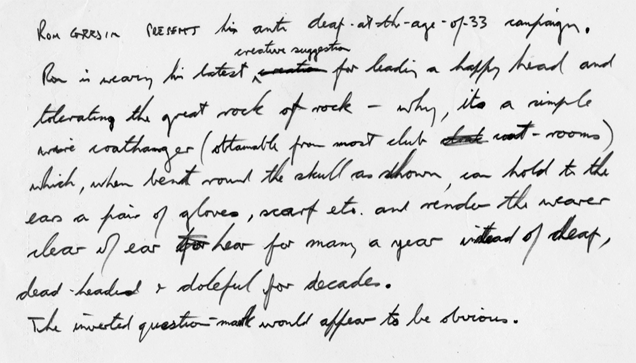 RON GEESIN PRESENTS his anti deaf-at-the-age-of-33 campaign.
creative suggestion
Ron is wearing his latest ^ creation for leading a happy head and
tolerating the great rock of rock – why, its a simple
wire coathanger (obtainable from most club coat-rooms)
which, when bent round the skull as shown, can hold to the
ears a pair of gloves, scarf etc. and render the wearer
clear of ear hear for many a year instead of deaf,
dead-headed & doleful for decades.
The inverted question-mark would appear to be obvious.